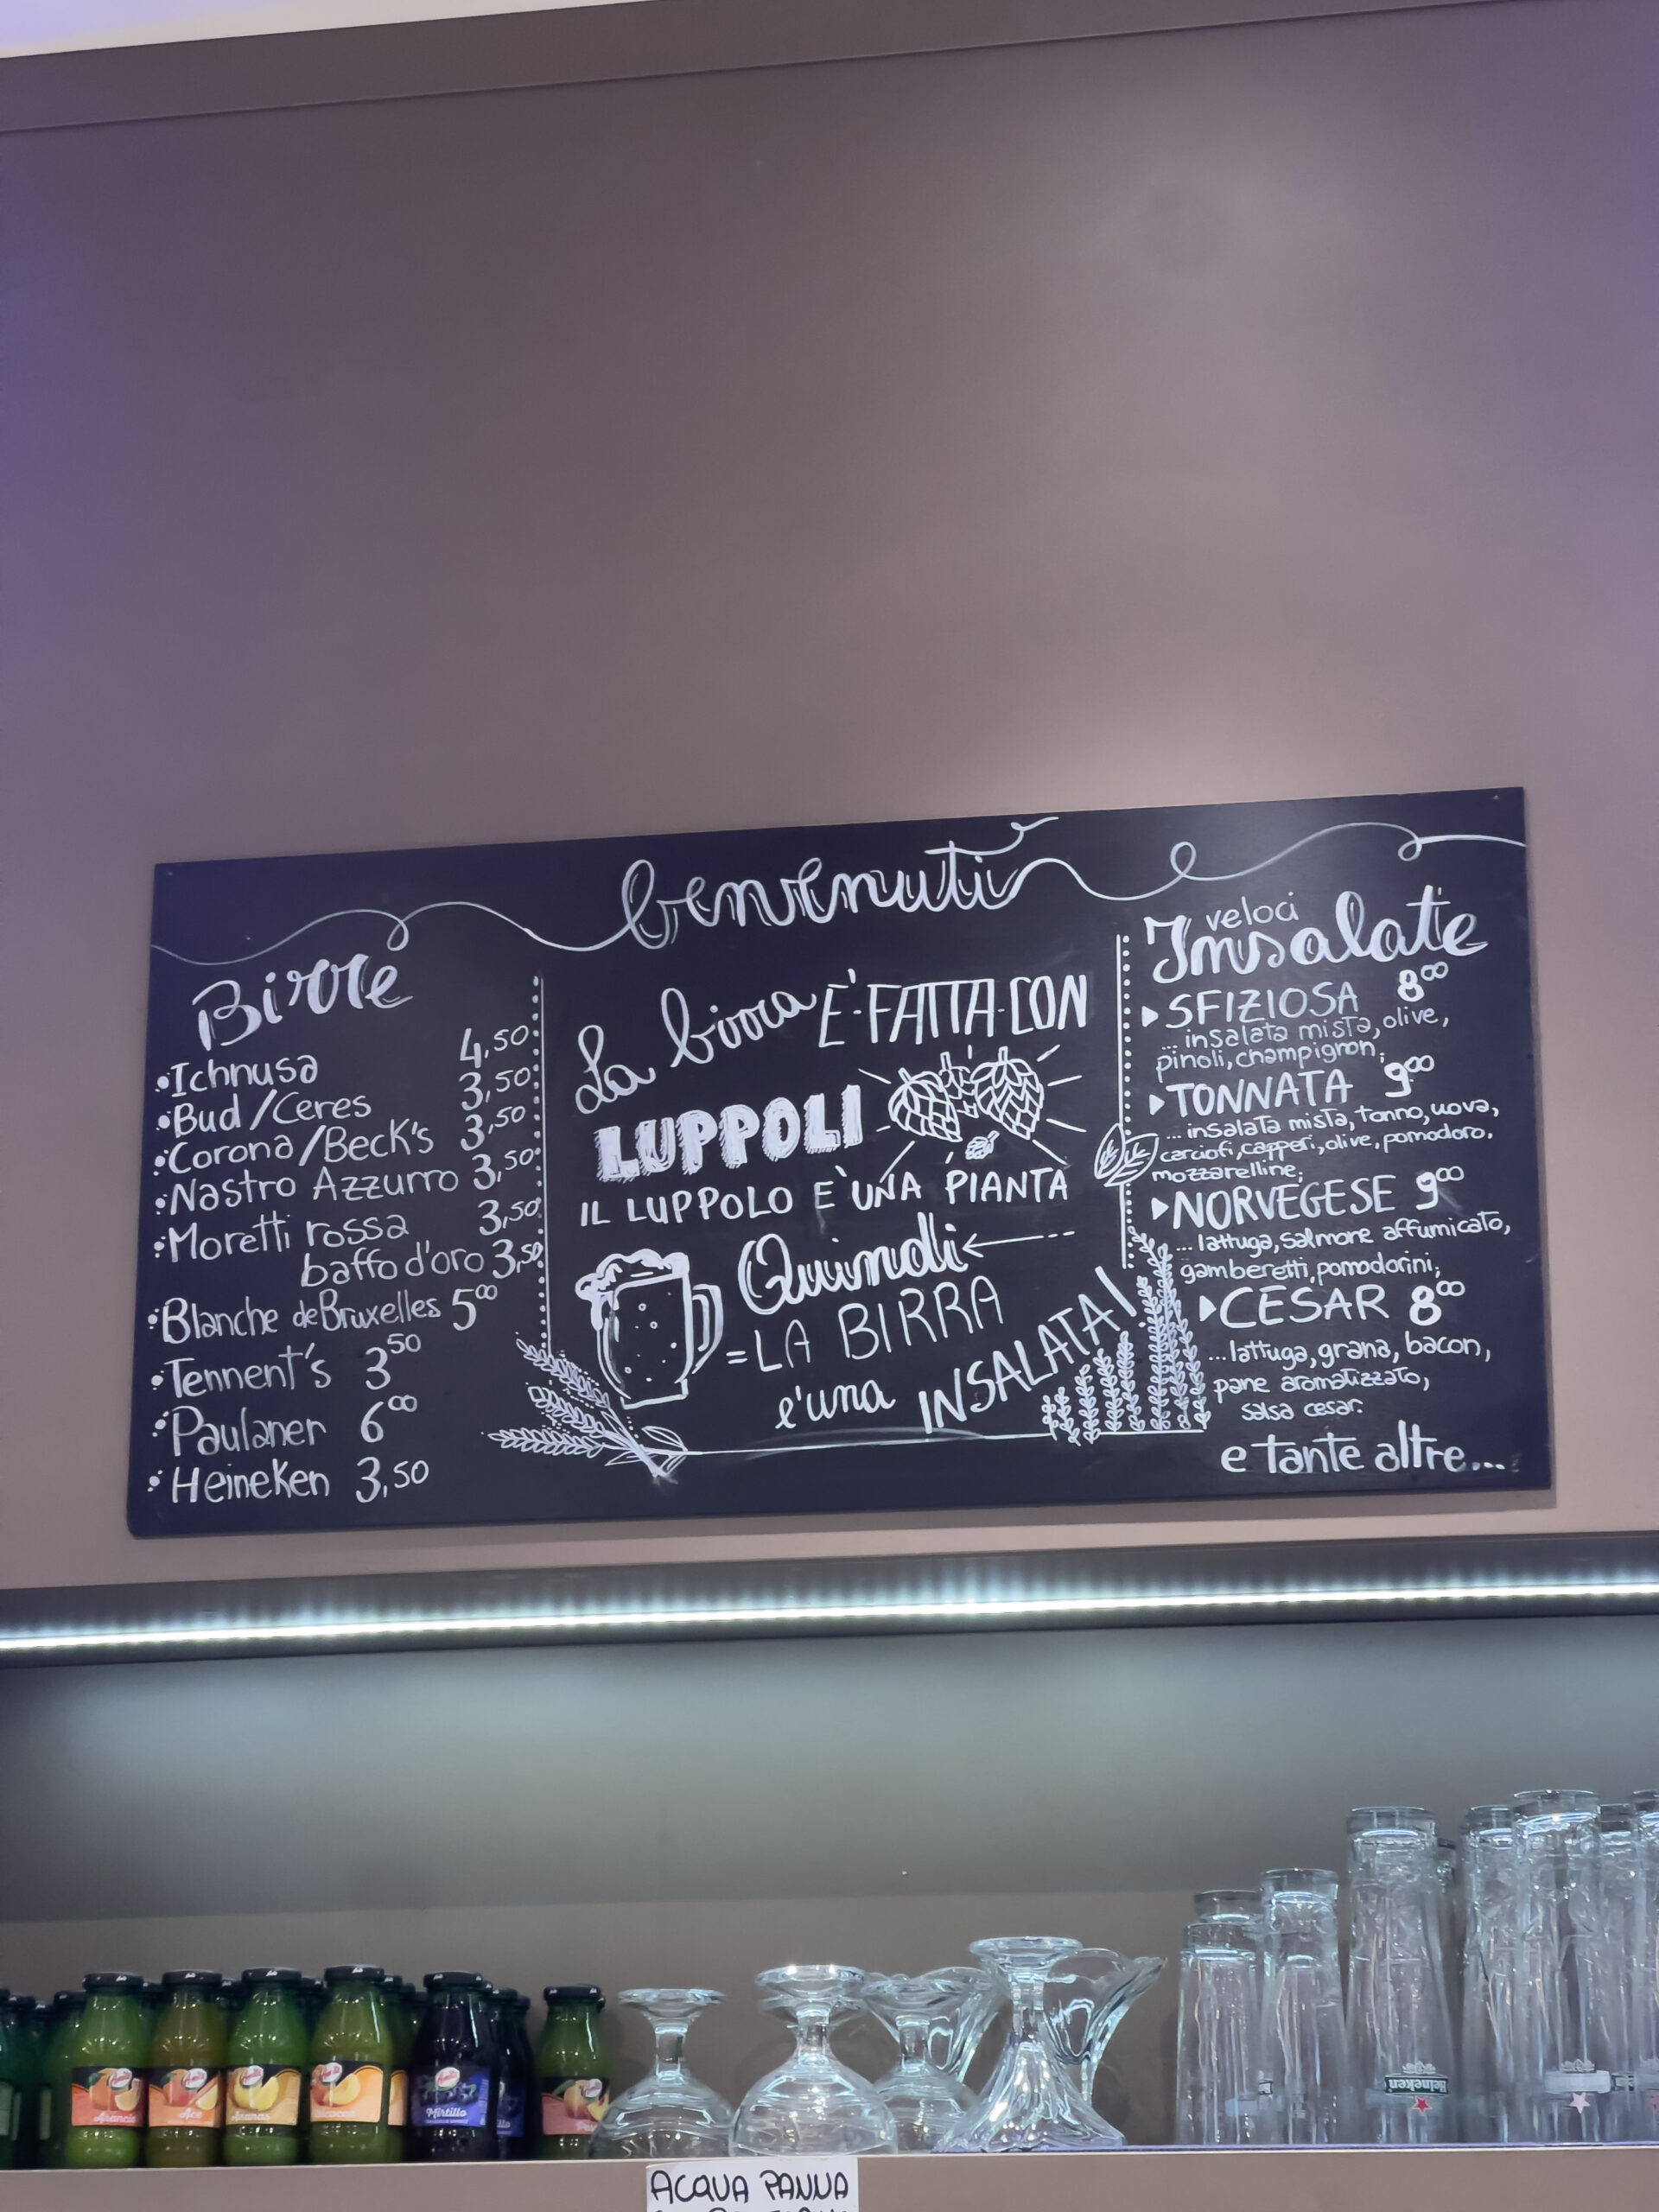 benvenuti
Birre
•Ichnusa 4,50
•Bud/Ceres 3,50
•Corona/Beck's 3,50
•Nastro Azzurro 3,50
•Moretti rossa 3,50
baffo d'oro 3,50
•Blanche de Bruxelles 5⁰⁰
•Tennent's 3⁵⁰
•Paulaner 6⁰⁰
•Heineken 3,50
La birra E'·FATTA·CON
LUPPOLI
IL LUPPOLO E'UNA PIANTA
Quindi
=LA BIRRA
e'una INSALATA!
veloci
Insalate
SFIZIOSA 8⁰⁰
...insalata mista, olive,
pinoli, champignon;
TONNATA 9⁰⁰
...insalata mista, tonno, uova,
carciofi, capperi, olive, pomodoro,
mozzarelline;
NORVEGESE 9⁰⁰
...lattuga, salmone affumicato,
gamberetti, pomodorini;
CESAR 8⁰⁰
...lattuga, grana, bacon,
pane aromatizzato,
salsa cesar.
e tante altre...
Arancia
Ace
Ananas
Mirtillo
Heineken
ACQUA PANNA